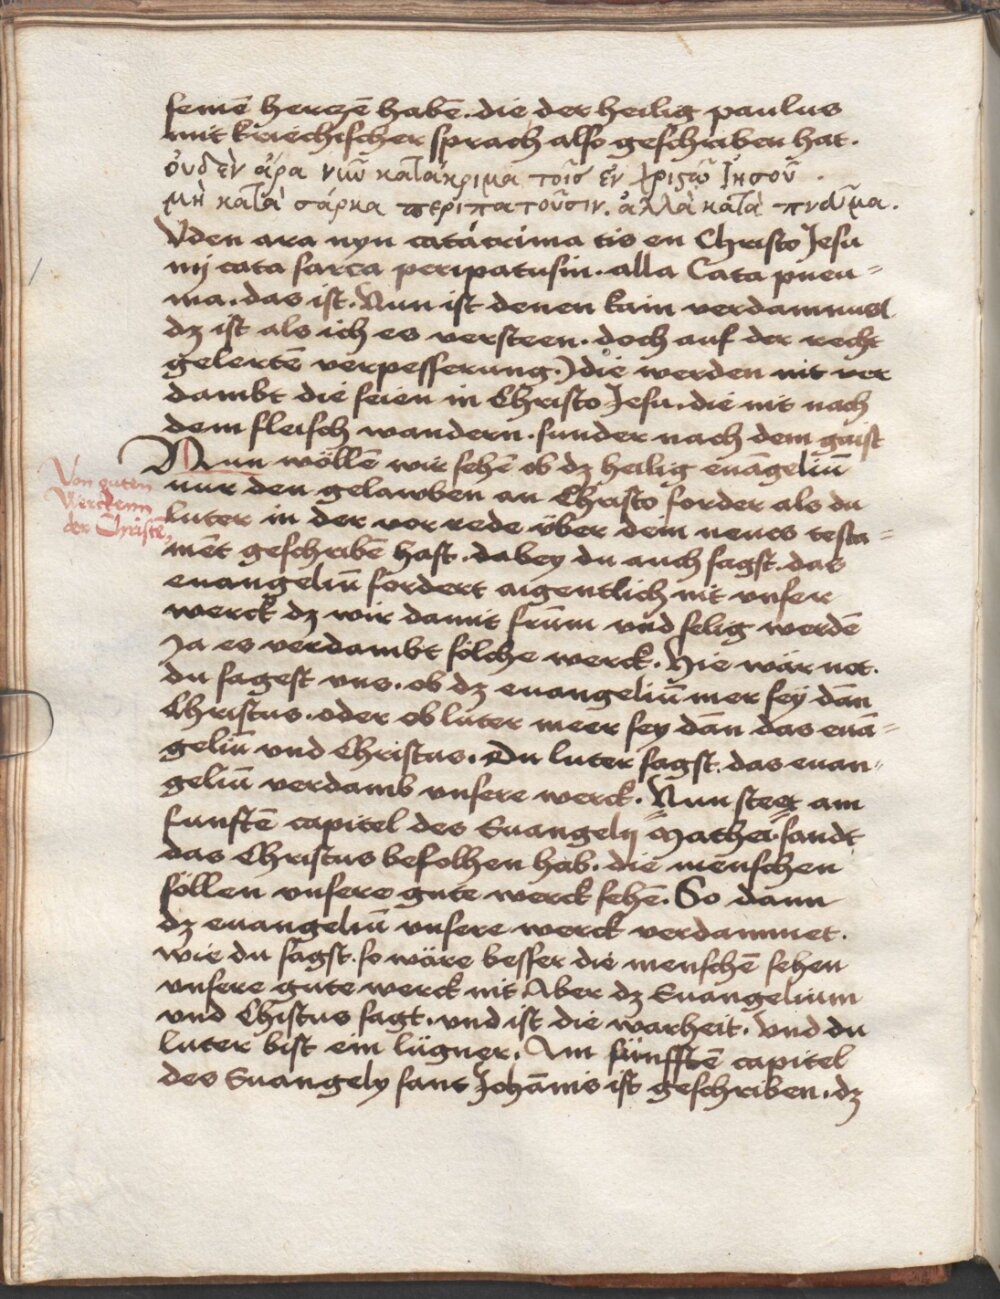 seinē herczē habē. die der heilig paulus
mit kriechischer sprach also geschriben hat.
ὀυδὲν ἄρα νῦν κατάκριμα τοῖσ ἐν χριστῶ ἰησοῦ.
μὴ κατὰ σάρκα περιπατοῦσιν. ἀλλὰ κατὰ πνεῦμα.
Vden ara nyn catácrima tis en Christo Jesu
mj cata sarca peripatusin. alla Cata pneu=
ma. das ist. Nun ist denen kain verdamnus
dz ist als ich es versteen. doch auf der recht
gelertē verpesserung.) die werden nit ver
dambt die seien in Christo Jesu. die nit nach
dem fleisch wandern. sunder nach dem gaist
Nun wöllē wir sehē ob dz heilig euāgeliū
nur den gelawben an Christo forder als du
Von guten
Werckenn
der Christē,
luter in der vor rede über dem neues testa=
mēt geschribē hast. dabey du auch sagst. das
euangeliū fordert aigentlich nit vnser
werck dz wir damit frūm vnd selig werdē
Ja es verdambt sölche werck. Hie wär not.
du sagest vns. ob dz euangeliū mer sey dān
Christus. oder ob luter meer sey dān das euā=
geliū vnd Christus. Du luter sagst. das euan=
geliū verdamb vnsere werck. Nun steet am
funftē capitel des Euangelij Mathei. sandt
das Christus befolhen hab. die menschen
söllen vnsere gute werck sehē. So dann
dz euangeliū vnsere werck verdammet.
wie du sagst. so wäre besser die menschē sehen
vnsere gute werck nit. Aber dz Euangelium
vnd Christus sagt. vnd ist die warheit. vnd du
luter bist ein lügner. Am fünfftē capitel
des Euangely sant Johānis ist geschriben. dz